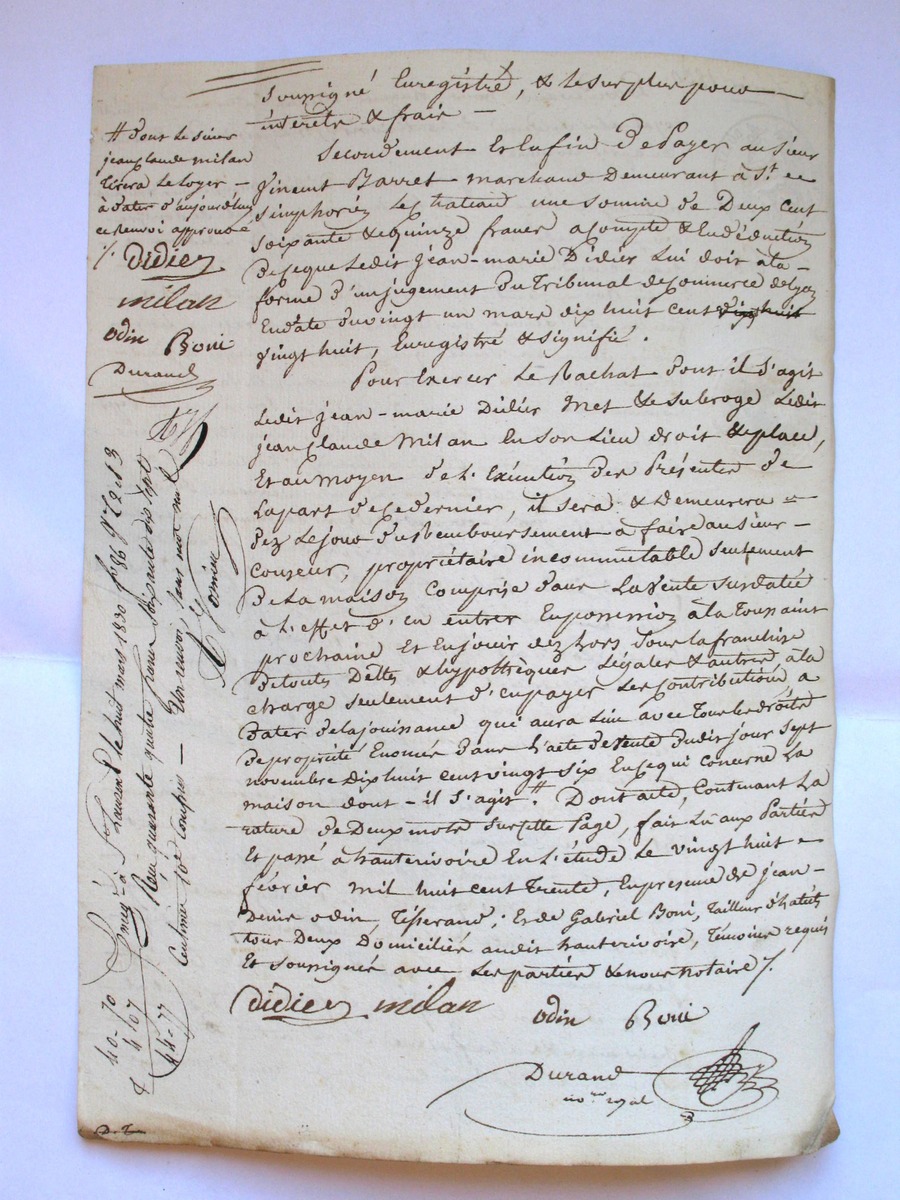 soussigné Enregistré, & le surplus pour
intérêts & frais —
Secondement Et Enfin De Payer au sieur
Vincent Barret marchand Demeurant à St.
simphorien le chateau une somme de Deux cent
soixante & quinze francs a compte & En déduction
De ce que Ledit Jean-marie Didier Lui doit à la
forme d'un jugement du Tribunal de Commerce de Lyon
En date du vingt un mars dix huit cent dix huit
vingt huit, Enregistré & signifié.
Pour Exercer Le Rachat Dont il S'agit
Ledit jean-marie Didier met & subroge Ledit
jean Claude Milan En son Lieu droit & place,
Et au moyen de L'Exécution des Présentes De
La part de ce dernier, il sera & Demeurera =
Dez Le jour du Remboursement à faire au sieur —
Couzeur, propriétaire incommutable seulement
De La maison Comprise dans La Vente susdatée
à L'effet d'en entrer En possession à la Toussaint
prochaine Et En jouir dez Lors sous la franchise
De toutes Dettes & hypothèques Légales & autres à la
charge seulement d'en payer Les Contributions à
Dater de la jouissance qui aura Lieu avec Tous Les droits
De propriété Enoncés Dans L'acte de Vente Dudit jour sept
novembre Dix huit cent vingt six En ce qui concerne La
maison dont-il S'agit #. Dont acte, Contenant La
rature de Deux mots sur cette Page, fait Lu aux Parties
Et passé à hauterivoire En L'étude Le vingt huit =
février mil huit cent Trente, En présence de jean-
Denis odin Tisserand; Et de Gabriel Boni, Tailleur d'habits
tous Deux Domiciliés audit hauterivoire, Témoins requis
Et soussignés avec Les parties & nous notaire /.
Didier milan odin Boni
Durand
no.re royal
# Dont Le sieur
jean Claude milan
tirera Le Loyer —
à dater d'aujourd'huy
ce Renvoi approuvé
/. Didier
milan
odin Boni
Durand
Enreg. à St. Laurent le huit mars 1830 f° 86
Reçu quarante quatre francs soixante dix sept
Centimes 10e compris — Un renvoi, sans mot nul
40-70
4 07
44-77